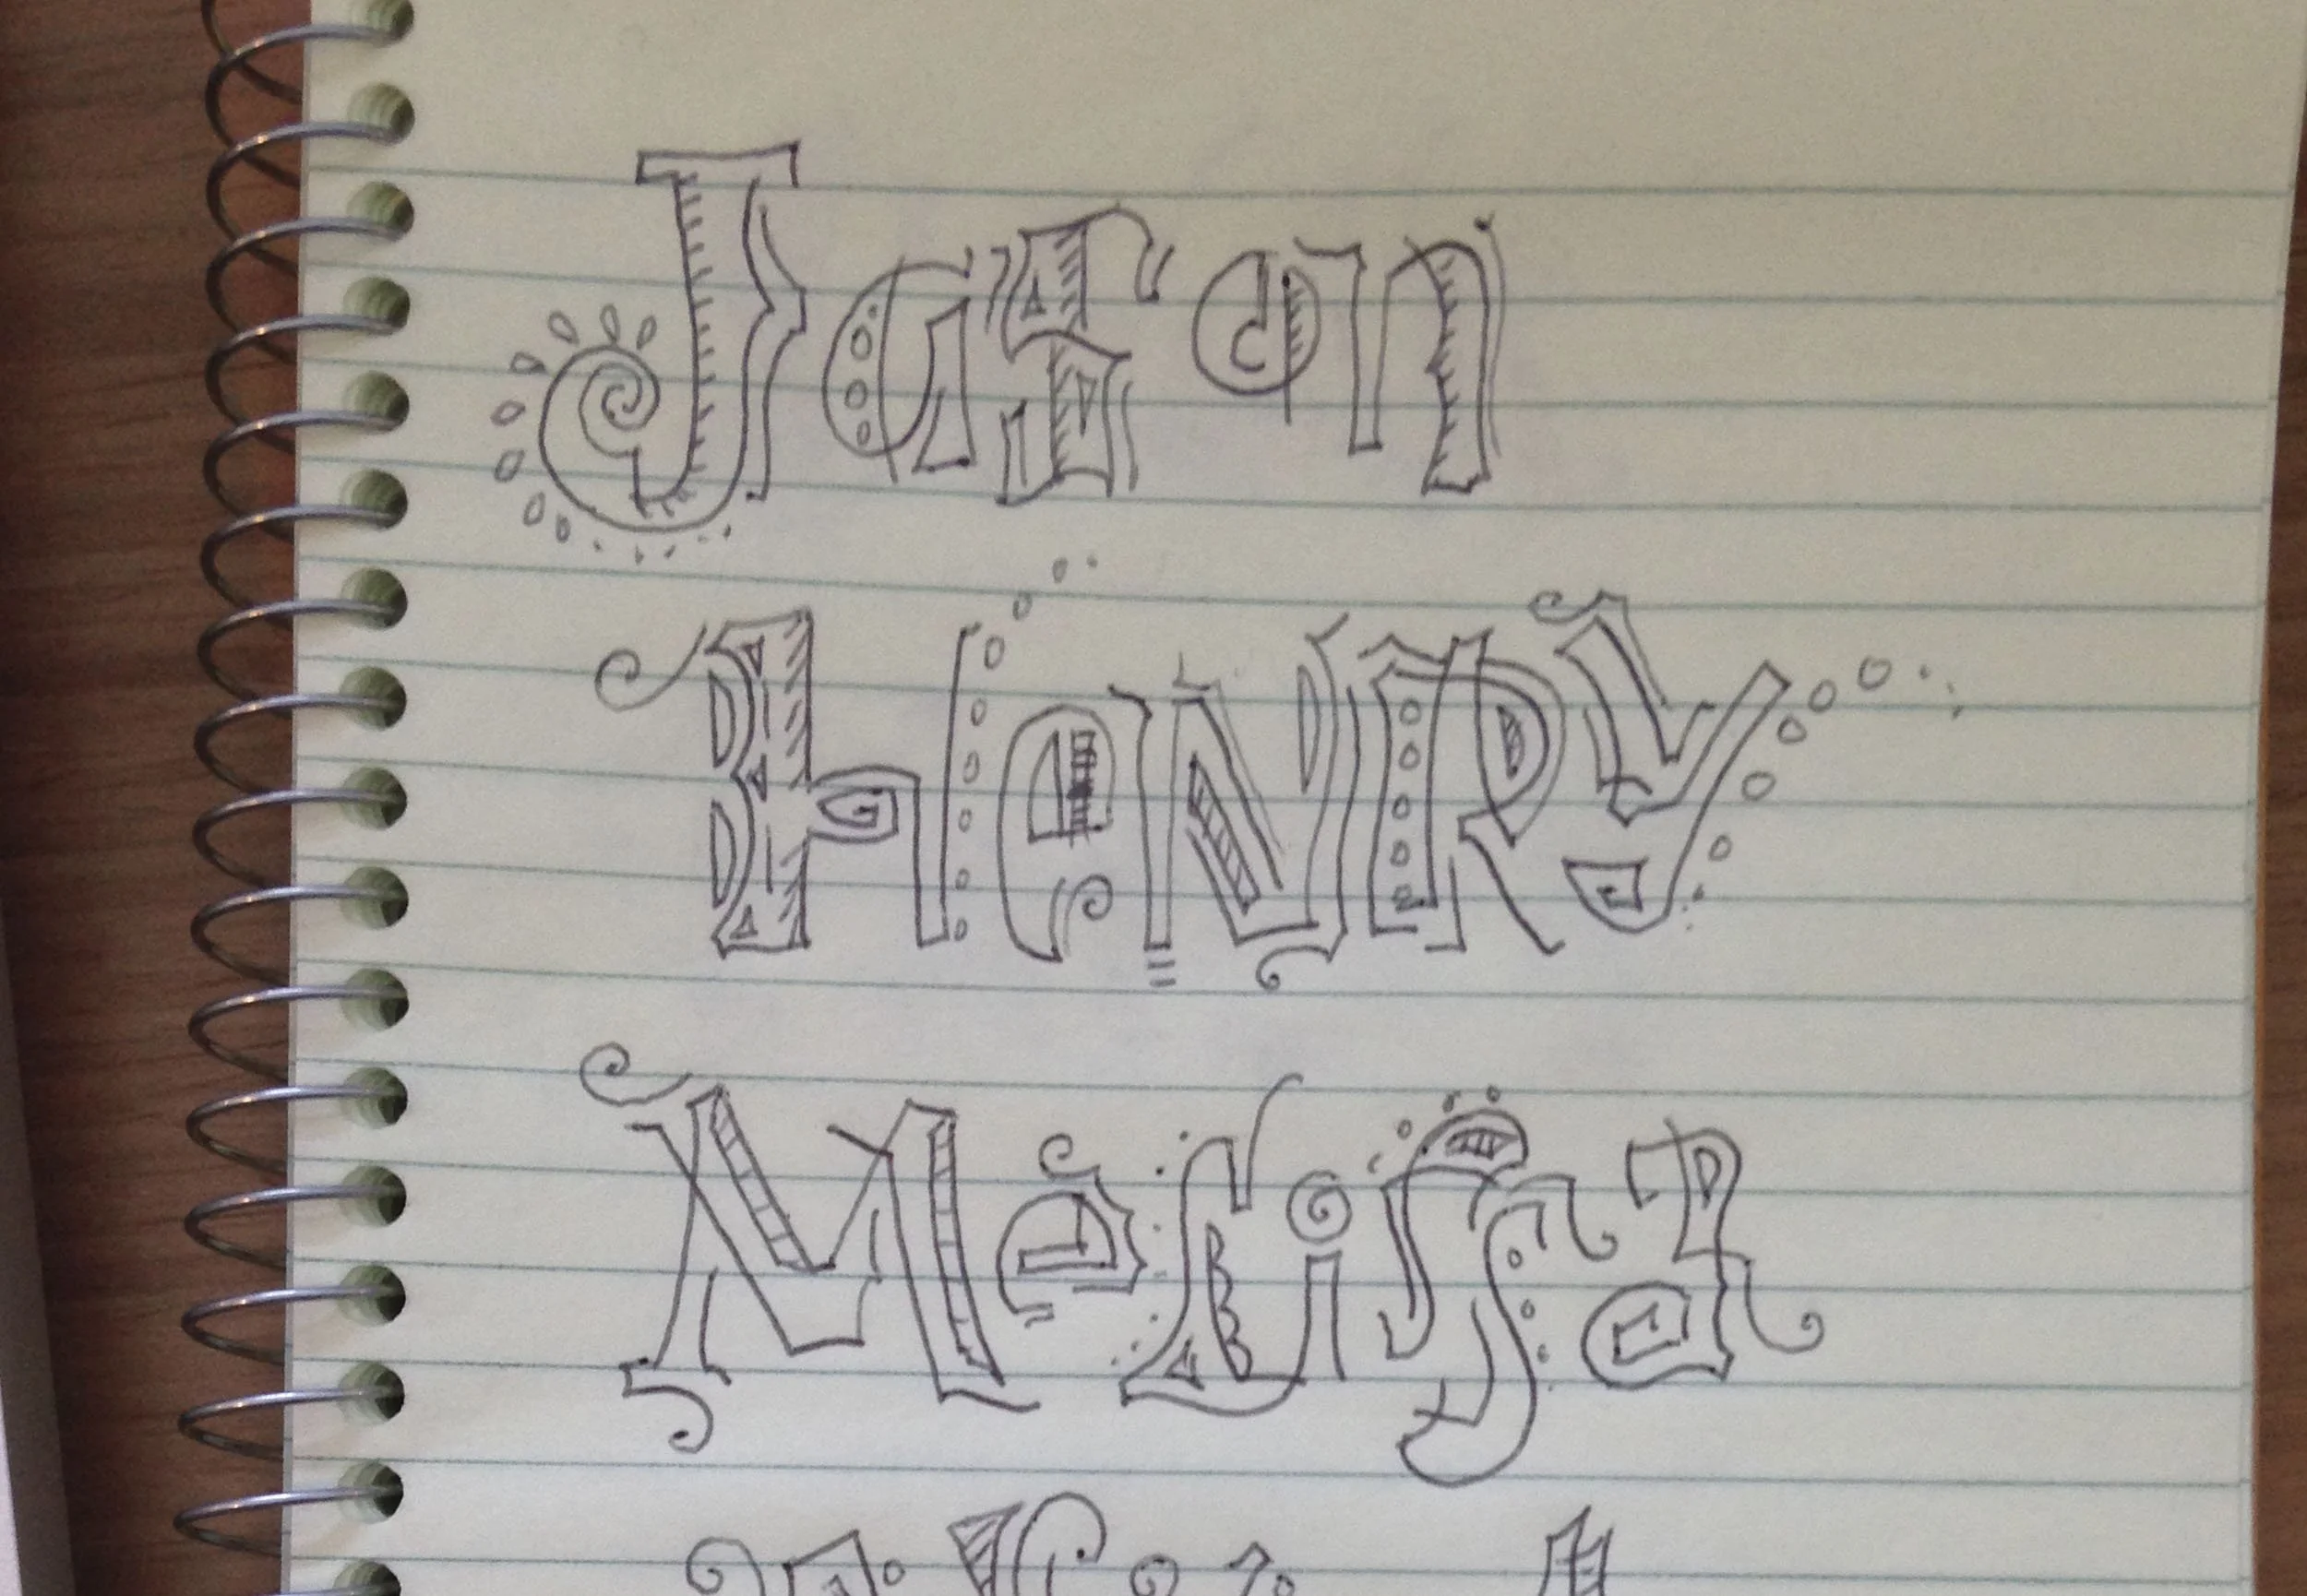 Jason
HeNRY
Melissa